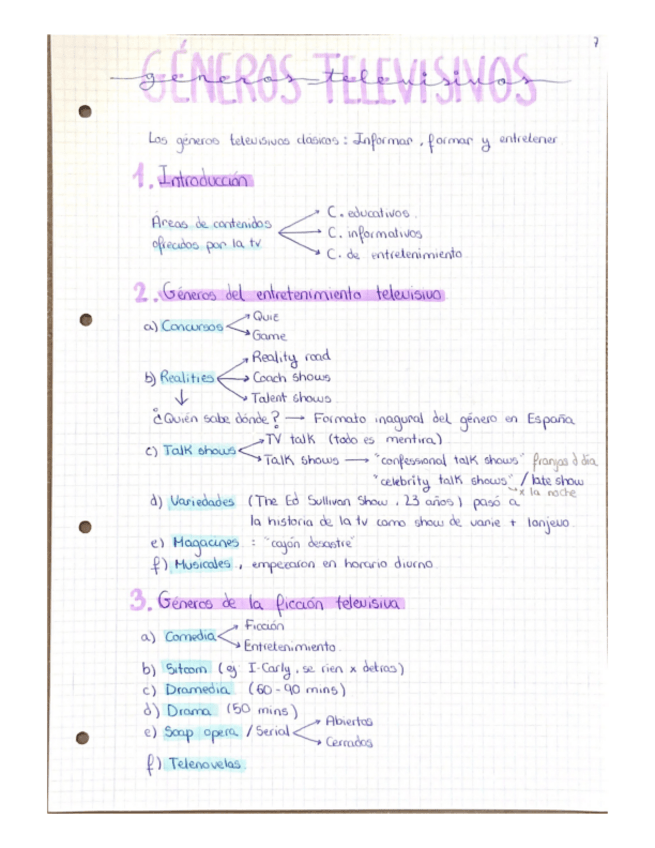 7
GÉNEROS TELEVISIVOS
géneros televisivos
Los géneros televisivos clásicos: Informar, formar y entretener
1. Introducción
Áreas de contenidos ofrecidos por la tv
C. educativos.
C. informativos
C. de entretenimiento
2. Géneros del entretenimiento televisivo
a) Concursos
Quiz
Game
b) Realities
Reality road
Coach shows
Talent shows
¿Quién sabe dónde? → Formato inagural del género en España
c) Talk shows
TV talk (todo es mentira)
Talk shows → "confessional talk shows" franjas d día
"celebrity talk shows" / late show
x la noche
d) Variedades (The Ed Sullivan Show, 23 años) pasó a
la historia de la tv como show de varie + lonjevo.
e) Magacines : "cajón desastre"
f) Musicales, empezaron en horario diurno
3. Géneros de la ficción televisiva
a) Comedia
Ficción
Entretenimiento
b) Sitcom (ej I-Carly, se rien x detras)
c) Dramedia (60-90 mins)
d) Drama (50 mins)
e) Soap opera / Serial
Abiertos
Cerrados
f) Telenovelas